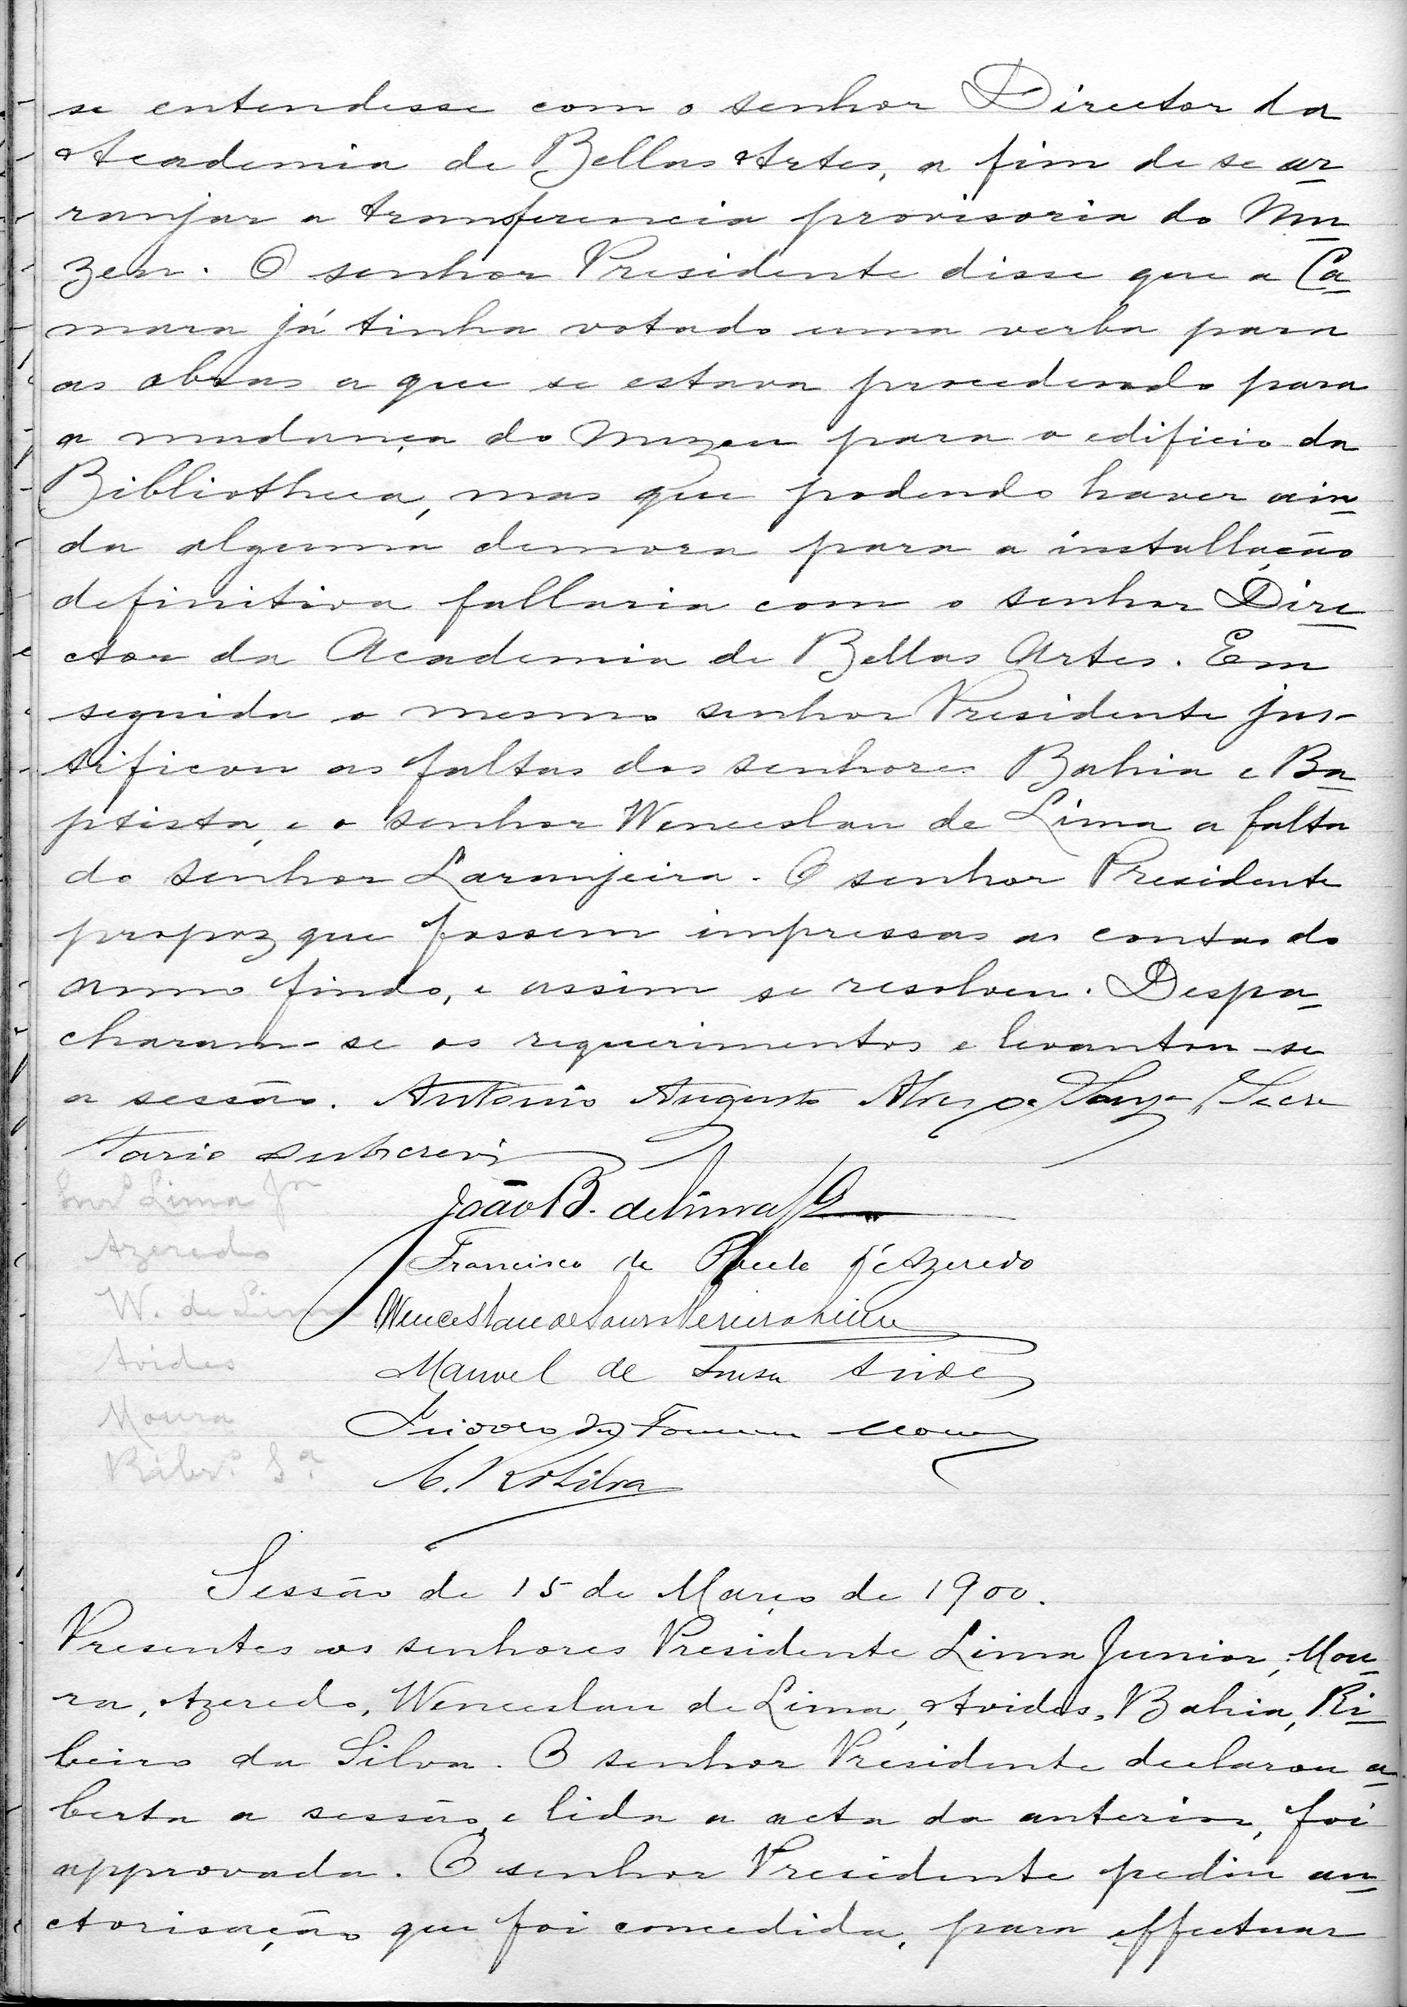 se entendesse com o senhor Director da
Academia de Bellas Artes, a fim de se ar
ranjar a transferencia provisoria do Mu
zeu. O senhor Presidente disse que a Ca
mara já tinha votado uma verba para
as obras a que se estava procedendo para
a mudança do Muzeu para o edificio da
Bibliotheca, mas que podendo haver ain
da alguma demora para a installação
definitiva fallaria com o senhor Dire
ctor da Academia de Bellas Artes. Em
seguida o mesmo senhor Presidente jus-
tificou as faltas dos senhores Bahia e Ba
ptista, e o senhor Wenceslau de Lima a falta
do senhor Laranjeira. O senhor Presidente
propoz que fossem impressas as contas do
anno findo, e assim se resolveu. Despa
charam-se os requerimentos e levantou-se
a sessão. Antonio Augusto Alves de Souza, Secre
tario subscrevi
Lima Jor
João B. de Lima Jor
Azeredo
Francisco de Paula d'Azeredo
W. de Lima
Wenceslau de Sousa Pereira Lima
Avides
Manoel de Sousa Avides
Moura
Isidoro da Fonseca Moura
Ribro Sa
A. R. da Silva
Sessão de 15 de Março de 1900.
Presentes os senhores Presidente Lima Junior, Mou
ra, Azeredo, Wenceslau de Lima, Avides, Bahia, Ri
beiro da Silva. O senhor Presidente declarou a
berta a sessão, e lida a acta da anterior, foi
approvada. O senhor Presidente pediu au
ctorisação que foi concedida, para effectuar